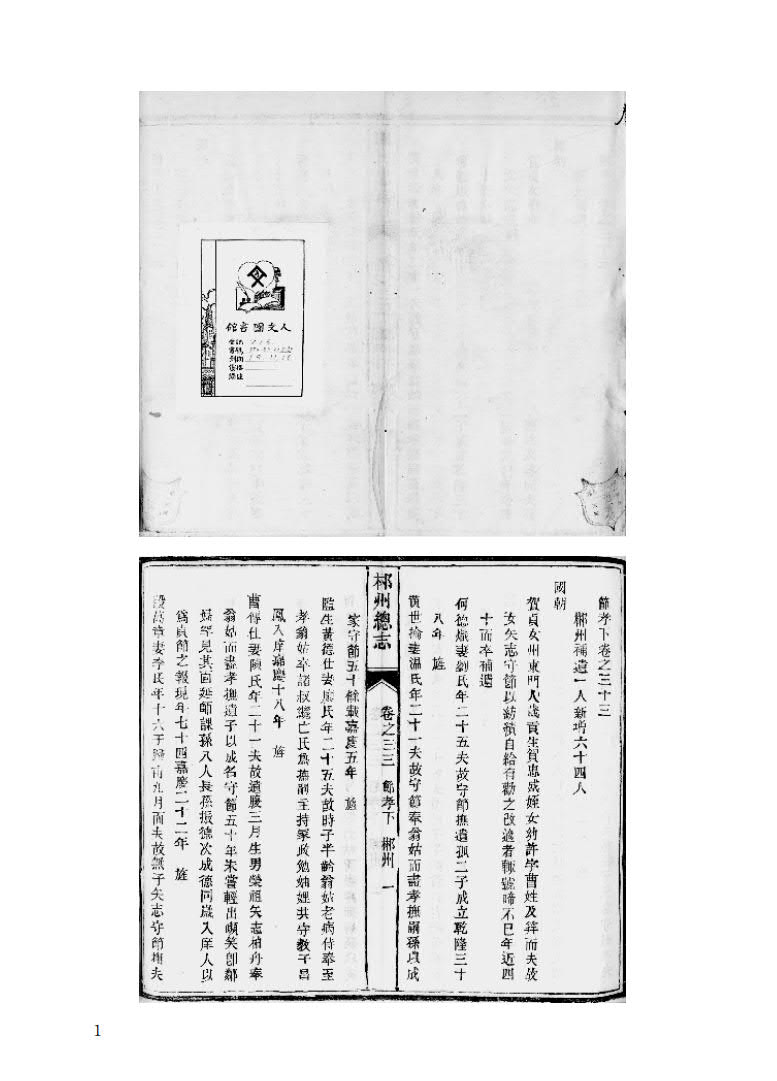 人文圖書館
節孝下卷之三十三
郴州補遺一人新增六十四人
國朝
賀貞女州東門人歲貢生賀忠成姪女幼許字曹姓及笄而夫故
女矢志守節以紡績自給有勸之改適者輒號啼不已年近四
十而卒補遺
何德熾妻劉氏年二十五夫故守節撫遺孤二子成立乾隆三十
八年 旌
黃世掄妻溫氏年二十一夫故守節奉翁姑而盡孝撫嗣孫以成
郴州總志 卷之三三 節孝下 郴州 一
家守節五十餘載嘉慶五年 旌
監生黃德仕妻 氏年二十五夫故時子半齡翁姑老病侍奉至
孝翁姑卒諸叔繼亡氏為撫嗣主持家政勉妯娌共守教子昌
鳳入庠嘉慶十八年 旌
曹傳仕妻陳氏年二十一夫故遺腹三月生男榮祖矢志柏舟奉
翁姑而盡孝撫遺子以成名守節五十年未嘗輕出嚬笑卽鄰
婦罕見其面延師課孫八人長孫振德次成德同歲入庠人以
為貞節之報現年七十四嘉慶二十二年 旌
段萬章妻李氏年十六于歸甫九月而夫故無子矢志守節撫夫
1